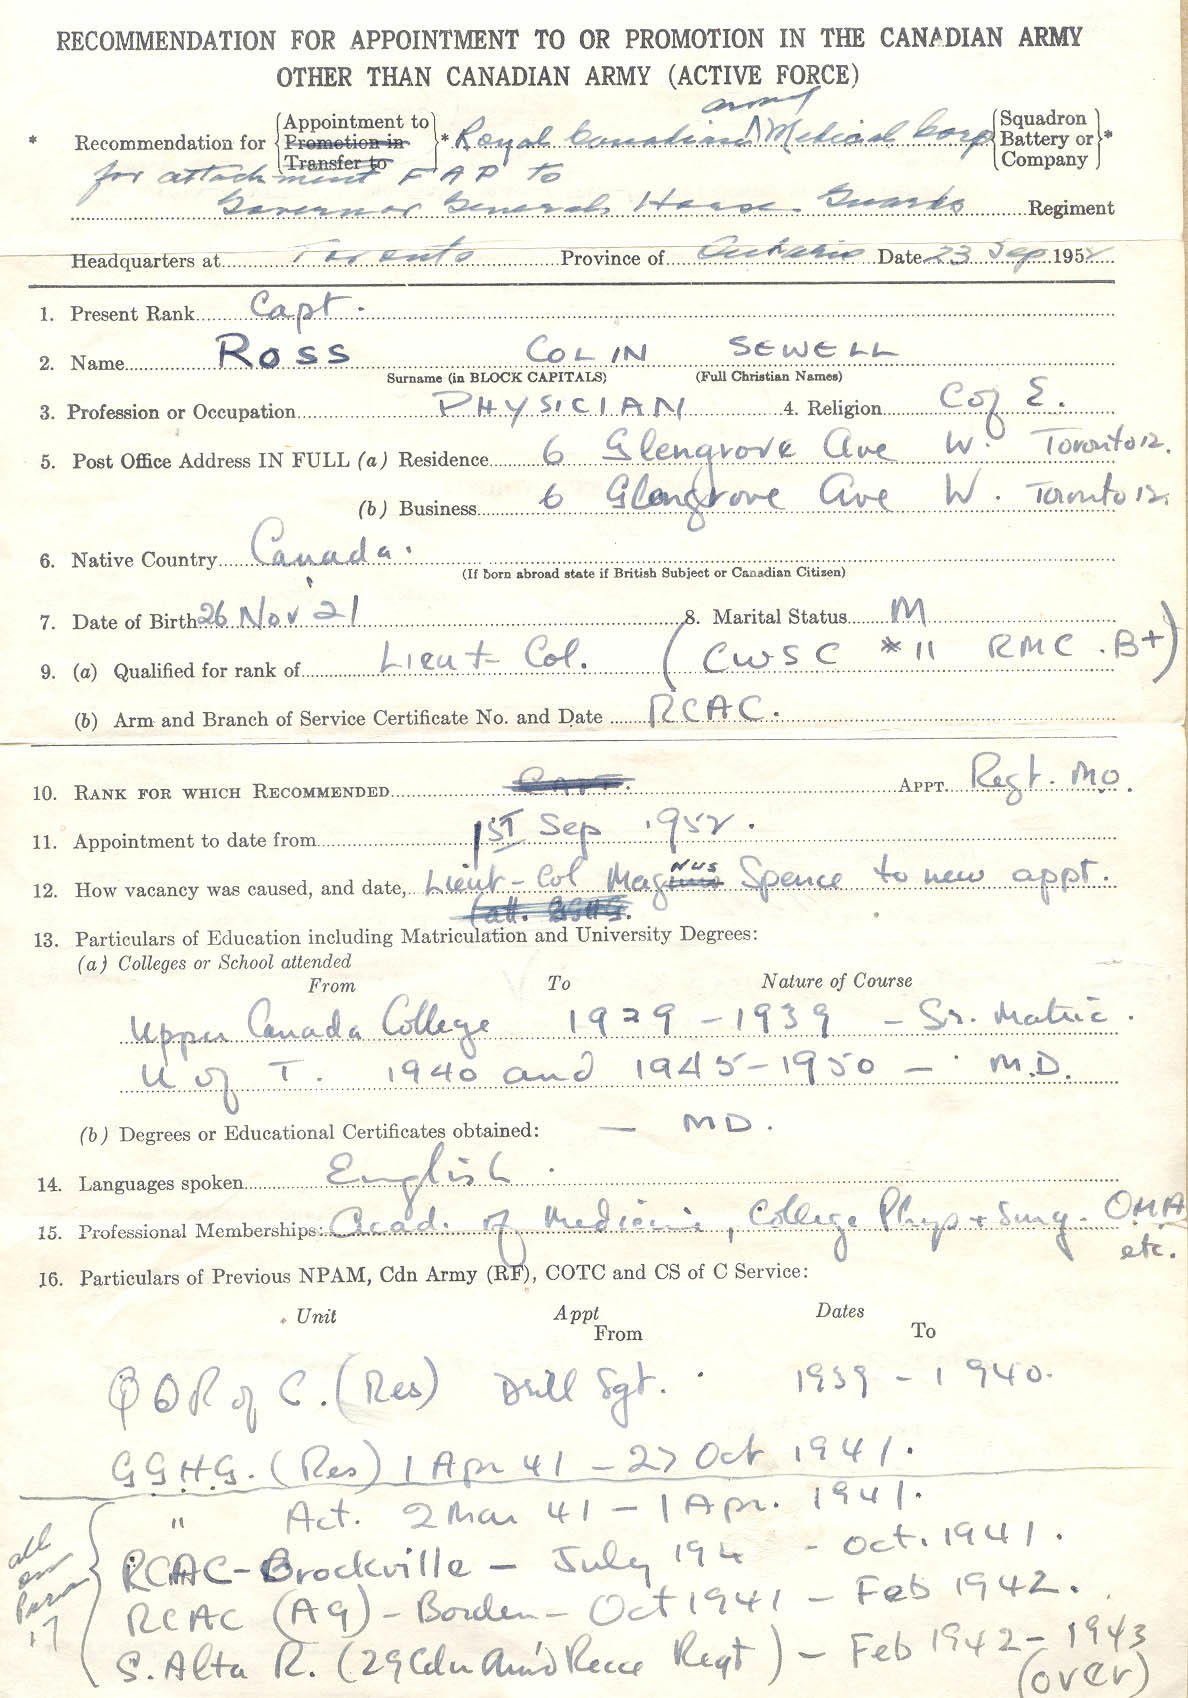 RECOMMENDATION FOR APPOINTMENT TO OR PROMOTION IN THE CANADIAN ARMY
OTHER THAN CANADIAN ARMY (ACTIVE FORCE)
* Recommendation for {Appointment to Promotion in Transfer to}* Royal Canadian army Medical Corp {Squadron Battery or Company}*
for attachment FAP to
Governor Generals Horse Guards Regiment
Headquarters at Toronto Province of Ontario Date 23 Sep 1952
1. Present Rank Capt.
2. Name ROSS COLIN SEWELL
Surname (in BLOCK CAPITALS) (Full Christian Names)
3. Profession or Occupation PHYSICIAN 4. Religion C of E.
5. Post Office Address IN FULL (a) Residence 6 Glengrove Ave W. Toronto 12.
(b) Business 6 Glengrove Ave W. Toronto 12.
6. Native Country Canada.
(If born abroad state if British Subject or Canadian Citizen)
7. Date of Birth 26 Nov 21 8. Marital Status M
9. (a) Qualified for rank of Lieut Col. (CWSC #11 RMC. B+)
(b) Arm and Branch of Service Certificate No. and Date RCAC.
10. RANK FOR WHICH RECOMMENDED CAPT. APPT. Regt. MO.
11. Appointment to date from 1ST Sep 1952.
12. How vacancy was caused, and date, Lieut-Col Magnus Spence to new appt.
(att. GGHG.
13. Particulars of Education including Matriculation and University Degrees:
(a) Colleges or School attended
From To Nature of Course
Upper Canada College 1929 - 1939 - Sr. Matric.
U of T. 1940 and 1945-1950 - M.D.
(b) Degrees or Educational Certificates obtained: - MD.
14. Languages spoken English.
15. Professional Memberships: Acad. of Medicine, College Phys + Surg. OMA
etc.
16. Particulars of Previous NPAM, Cdn Army (RF), COTC and CS of C Service:
Unit Appt Dates
From To
QOR of C. (Res) Drill Sgt. 1939 - 1940.
GGHG. (Res) 1 Apr 41 - 27 Oct 1941.
" Act. 2 Mar 41 - 1 Apr. 1941.
RCAC-Brockville - July 194 - Oct. 1941.
RCAC (A9) - Borden - Oct 1941 - Feb 1942.
S. Alta R. (29 Cdn Arm'd Recce Regt) - Feb 1942 - 1943
(over)
all on Para 17